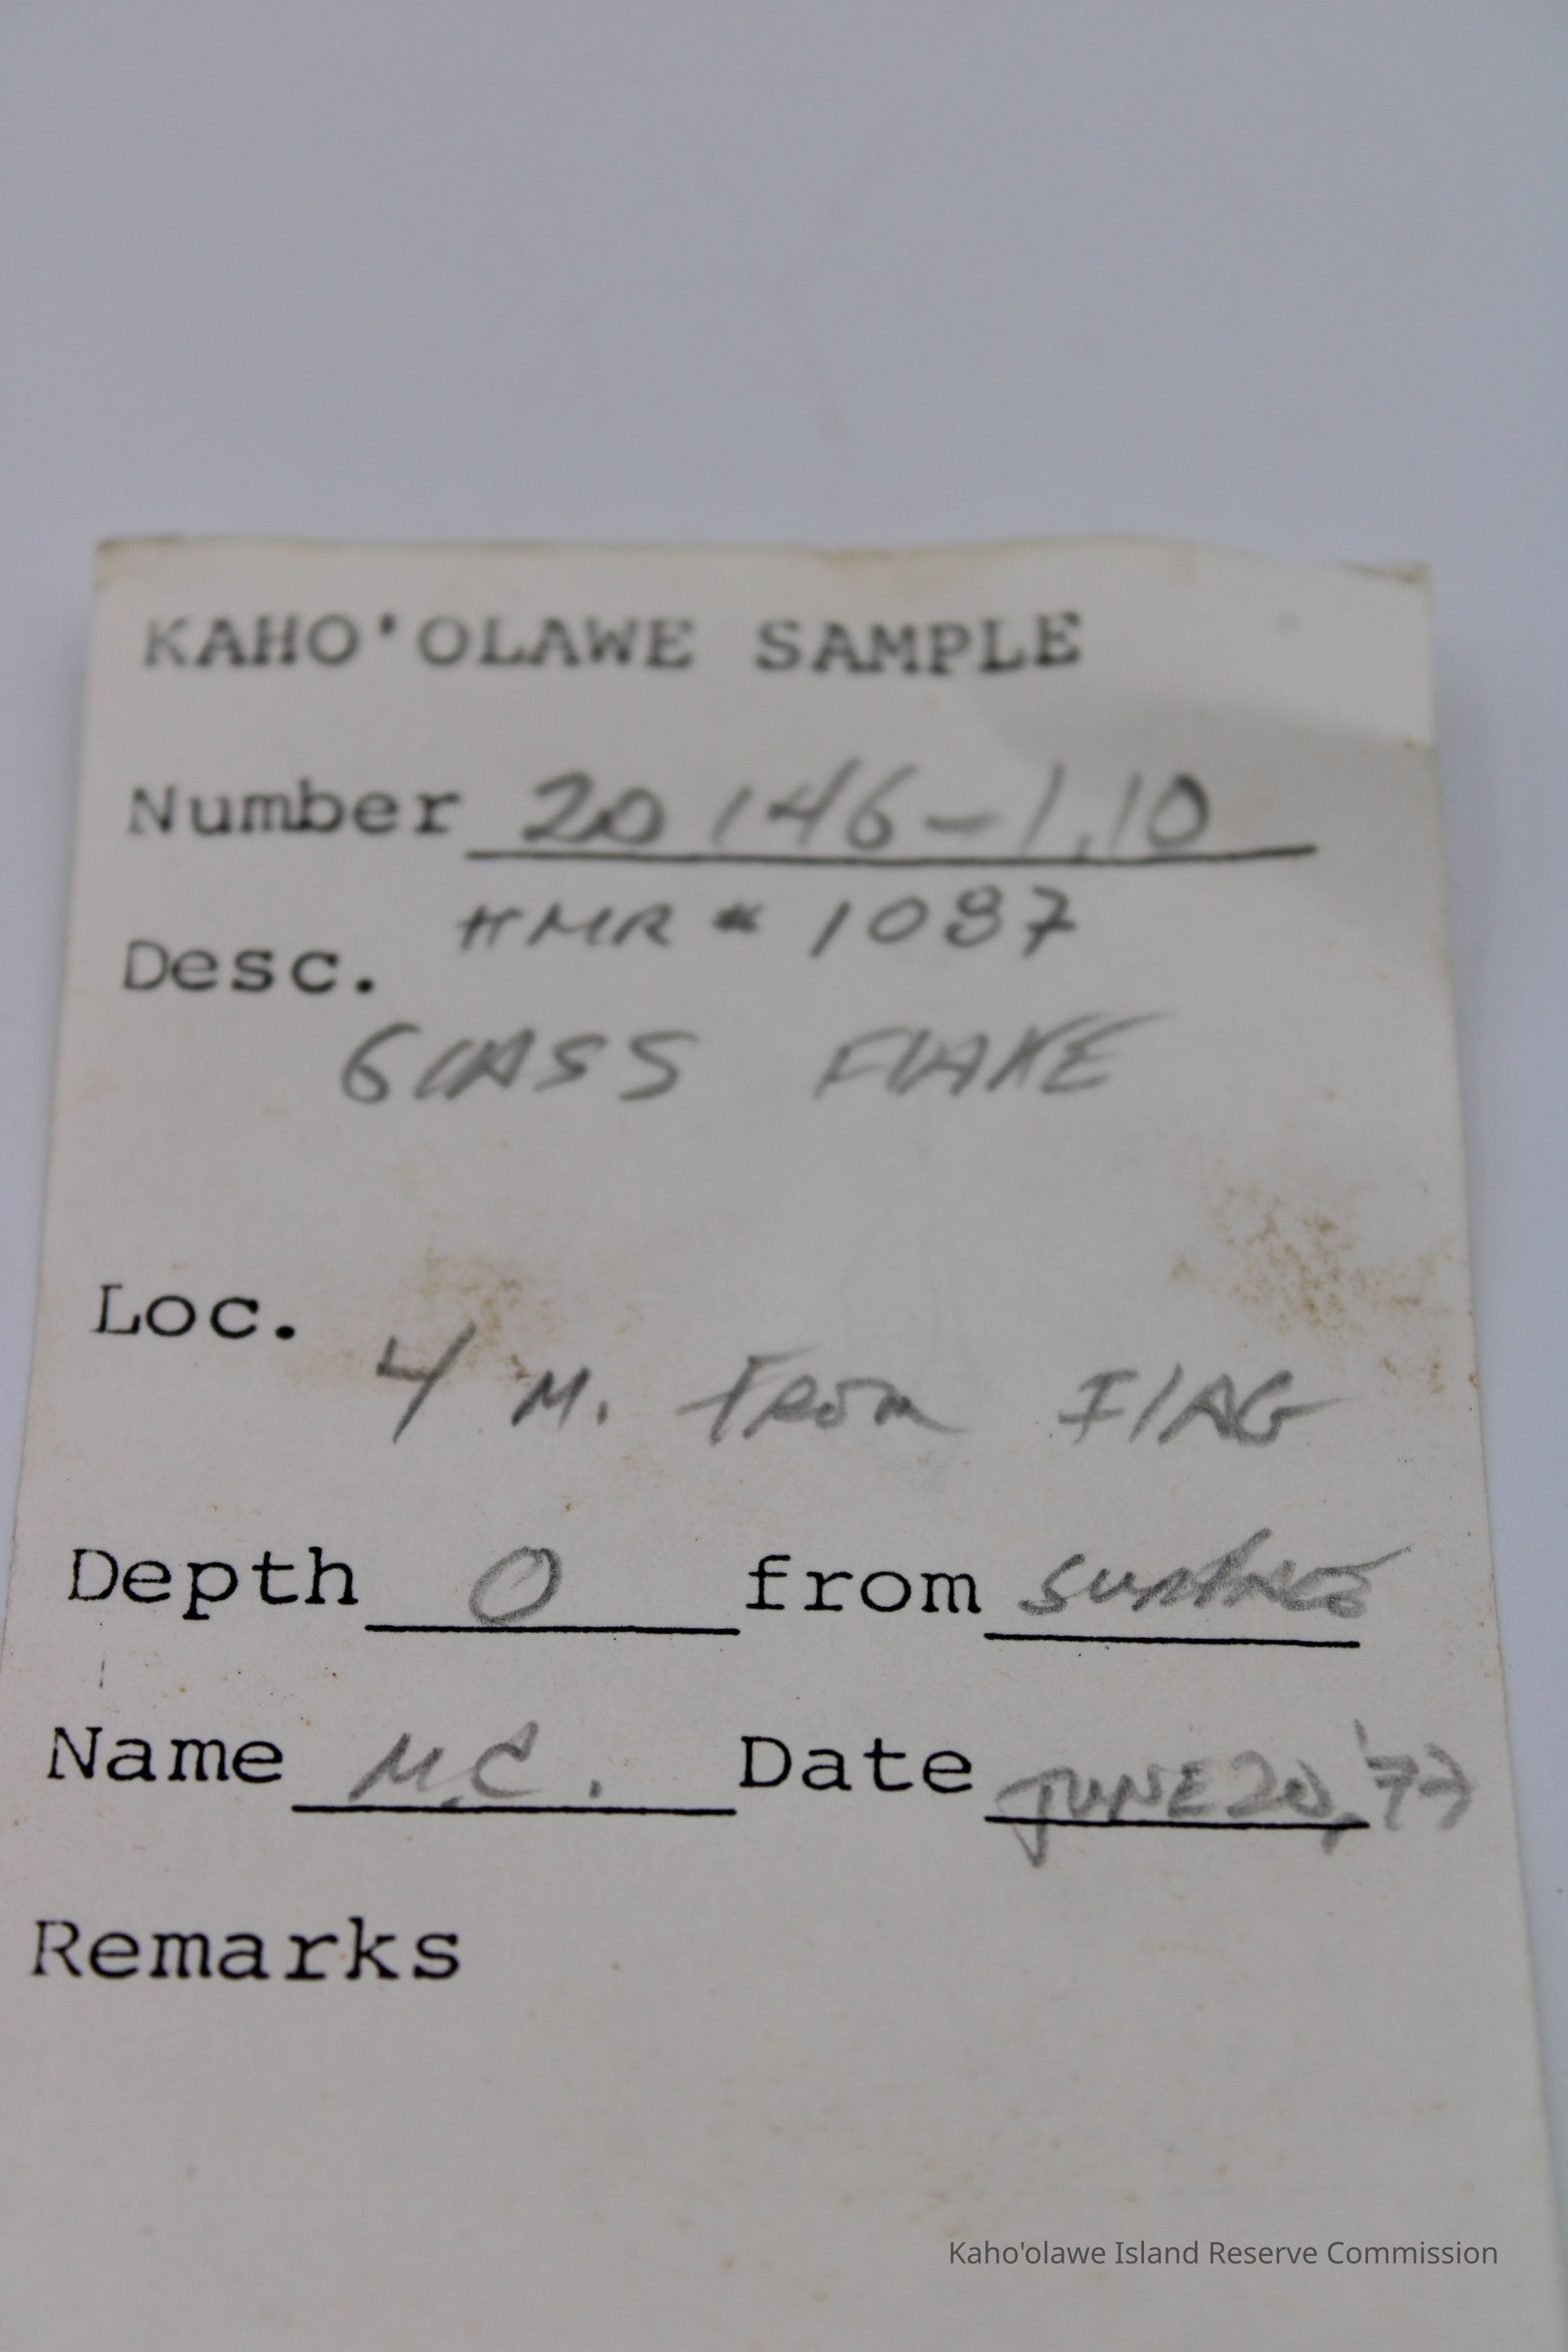 KAHO'OLAWE SAMPLE
Number 20 146-1.10
HMR # 1087
Desc.
GLASS FLAKE
Loc.
4 M. FROM FLAG
Depth 0 from SURFACE
Name M.C. Date JUNE 20, '77
Remarks
Kaho'olawe Island Reserve Commission